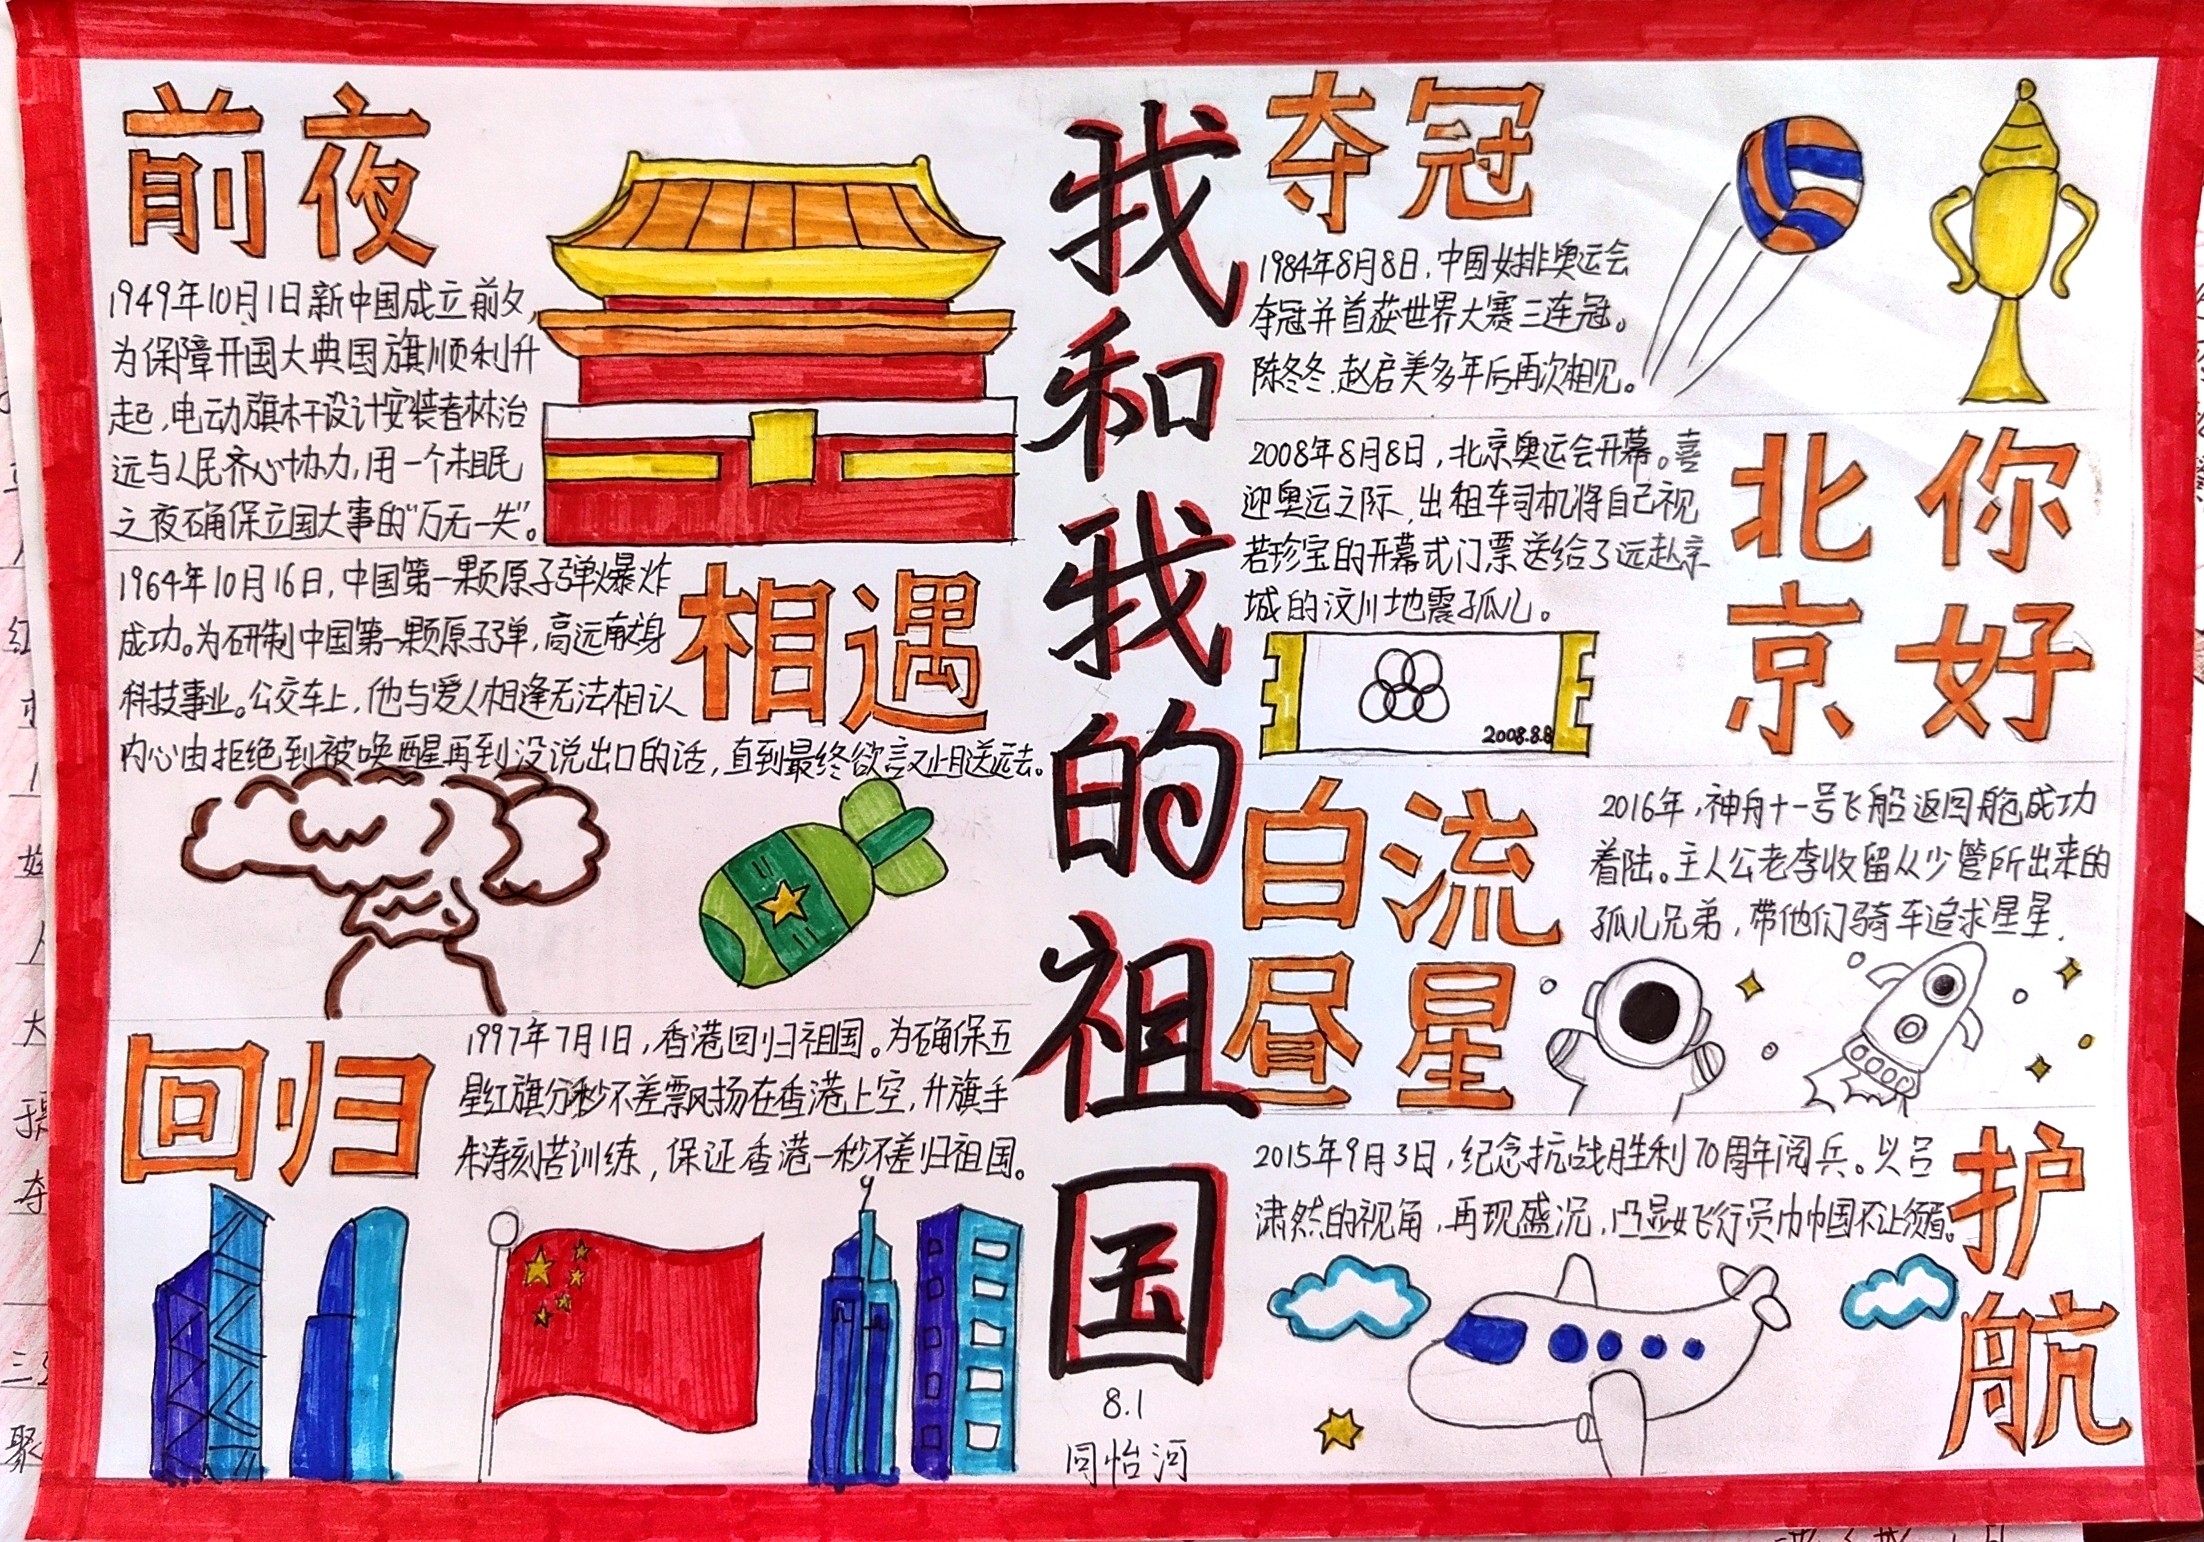 我和我的祖国
8.1
同怡河
前夜
1949年10月1日新中国成立前夕,
为保障开国大典国旗顺利升
起,电动旗杆设计安装者林治
远与人民齐心协力,用一个未眠
之夜确保立国大事的“万无一失”。
相遇
1964年10月16日,中国第一颗原子弹爆炸
成功。为研制中国第一颗原子弹,高远献身
科技事业。公交车上,他与爱人相逢无法相认
内心由拒绝到被唤醒再到没说出口的话,直到最终欲言又止目送远去。
回归
1997年7月1日,香港回归祖国。为确保五
星红旗分秒不差飘扬在香港上空,升旗手
朱涛刻苦训练,保证香港一秒不差归祖国。
夺冠
1984年8月8日,中国女排奥运会
夺冠并首获世界大赛三连冠。
陈冬冬,赵启美多年后再次相见。
北京你好
2008年8月8日,北京奥运会开幕。喜
迎奥运之际,出租车司机将自己视
若珍宝的开幕式门票送给了远赴京
城的汶川地震孤儿。
2008.8.8
白昼流星
2016年,神舟十一号飞船返回舱成功
着陆。主人公老李收留从少管所出来的
孤儿兄弟,带他们骑车追求星星.
护航
2015年9月3日,纪念抗战胜利70周年阅兵。以吕
潇然的视角,再现盛况,凸显女飞行员巾帼不让须眉。